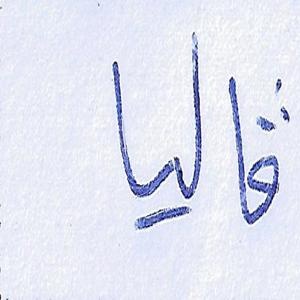 قاليا